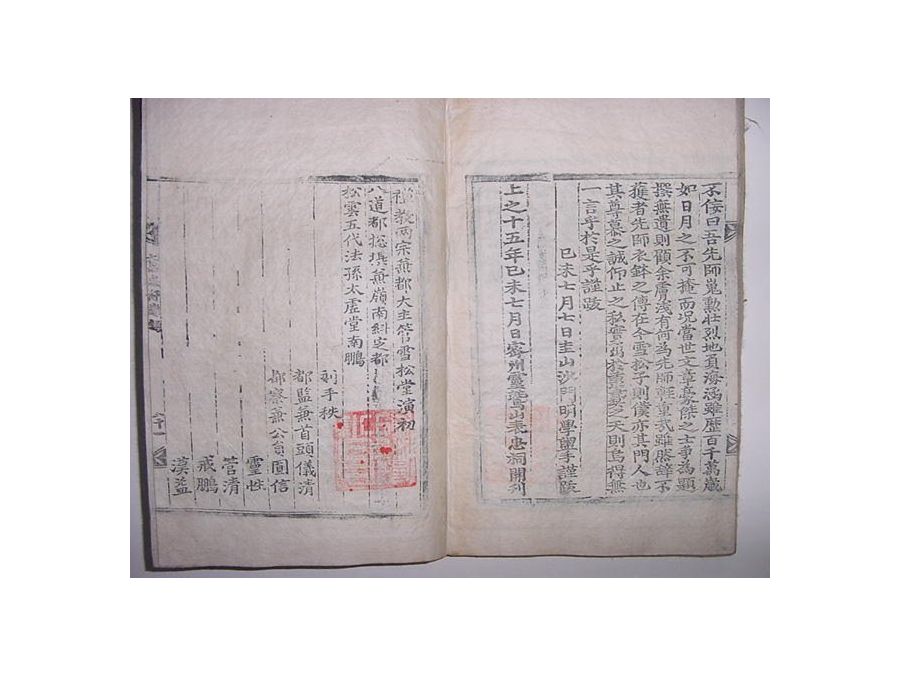 不侫曰吾先師嵬勳壯烈地負海涵雖歷百千萬歲
如日月之不可掩而況當世文章豪傑之士爭為題
撰無遺則顧余膚淺有何為先師輕重哉雖然辭不
獲者先師衣鉢之傳在今雪松子則僕亦其門人也
其尊慕之誠仰止之私實出於之天則烏得無
一言乎於是乎謹跋
己未七月七日圭山沙門明學盥手謹跋
上之十五年己未七月日密州靈鷲山表忠祠開刊
禪教兩宗兼都大主管雪松堂演初
八道都摠攝兼嶺南糾正都
松雲五代法孫太虛堂南鵬
刻手秩
都監兼首頭儀清
都察兼公員圓信
靈性
管清
戒鵬
漢益